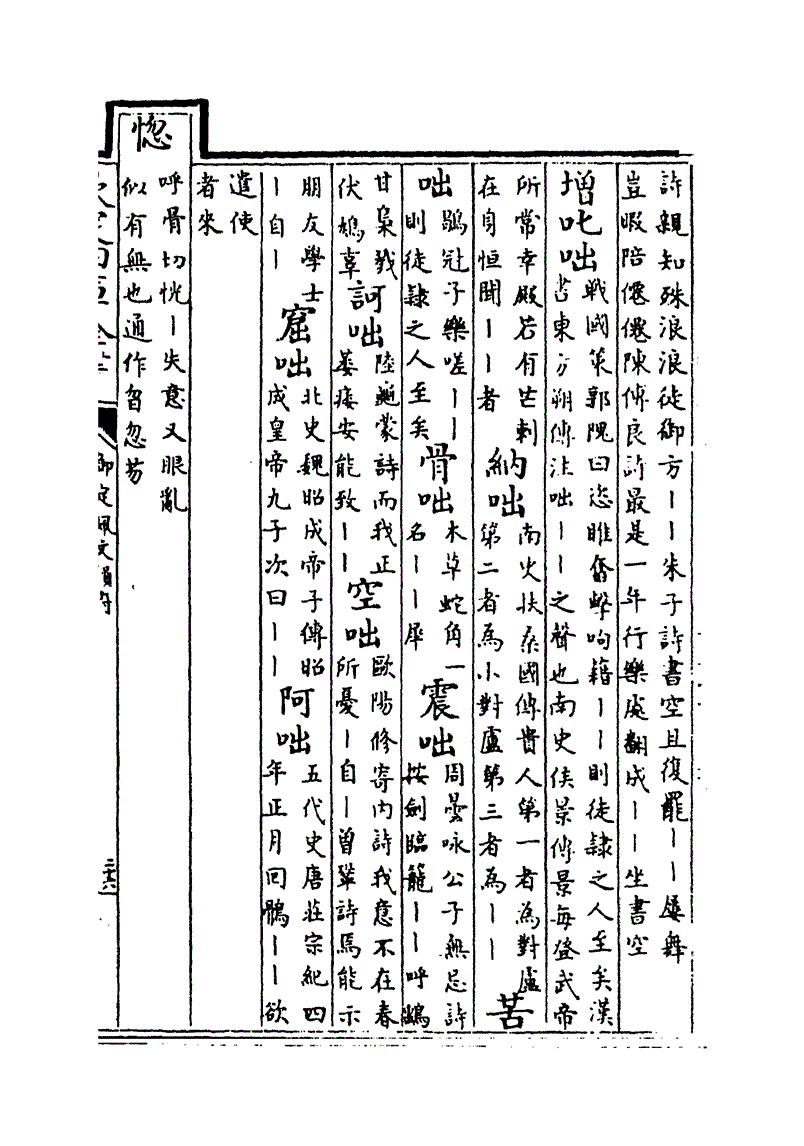 許親知殊浪浪徒御方丨丨朱子詩書空且復罷丨丨屢舞
豈暇陪僊僊陳傅良詩最是一年行樂處翻成丨丨坐書空
增叱咄戰國策郭隗曰恣睢奮擊呴藉丨丨則徒隸之人至矣漢
書東方朔傳注咄丨丨之聲也南史侯景傳景每登武帝
所常幸殿若有芒刺
在身恒聞丨丨者
納咄南史扶桑國傳貴人第一者為對盧
第二者為小對盧第三者為丨丨
苦
咄鶡冠子樂嗟丨丨
則徒隸之人至矣
骨咄本草蛇角一
名丨丨犀
震咄周曇咏公子無忌詩
按劍臨籠丨丨呼鷂
甘梟戮
伏鳩辜
訶咄陸龜蒙詩而我正
萎痿安能致丨丨
空咄歐陽修寄内詩我意不在春
所憂丨自丨曾鞏詩焉能示
朋友學士
丨自丨
窟咄北史魏昭成帝子傳昭
成皇帝九子次曰丨丨
阿咄五代史唐莊宗紀四
年正月回鶻丨丨欲
遣使
者來
惚
呼骨切恍丨失意又眼亂
似有無也通作曶忽芴
御定佩文韻府
二六